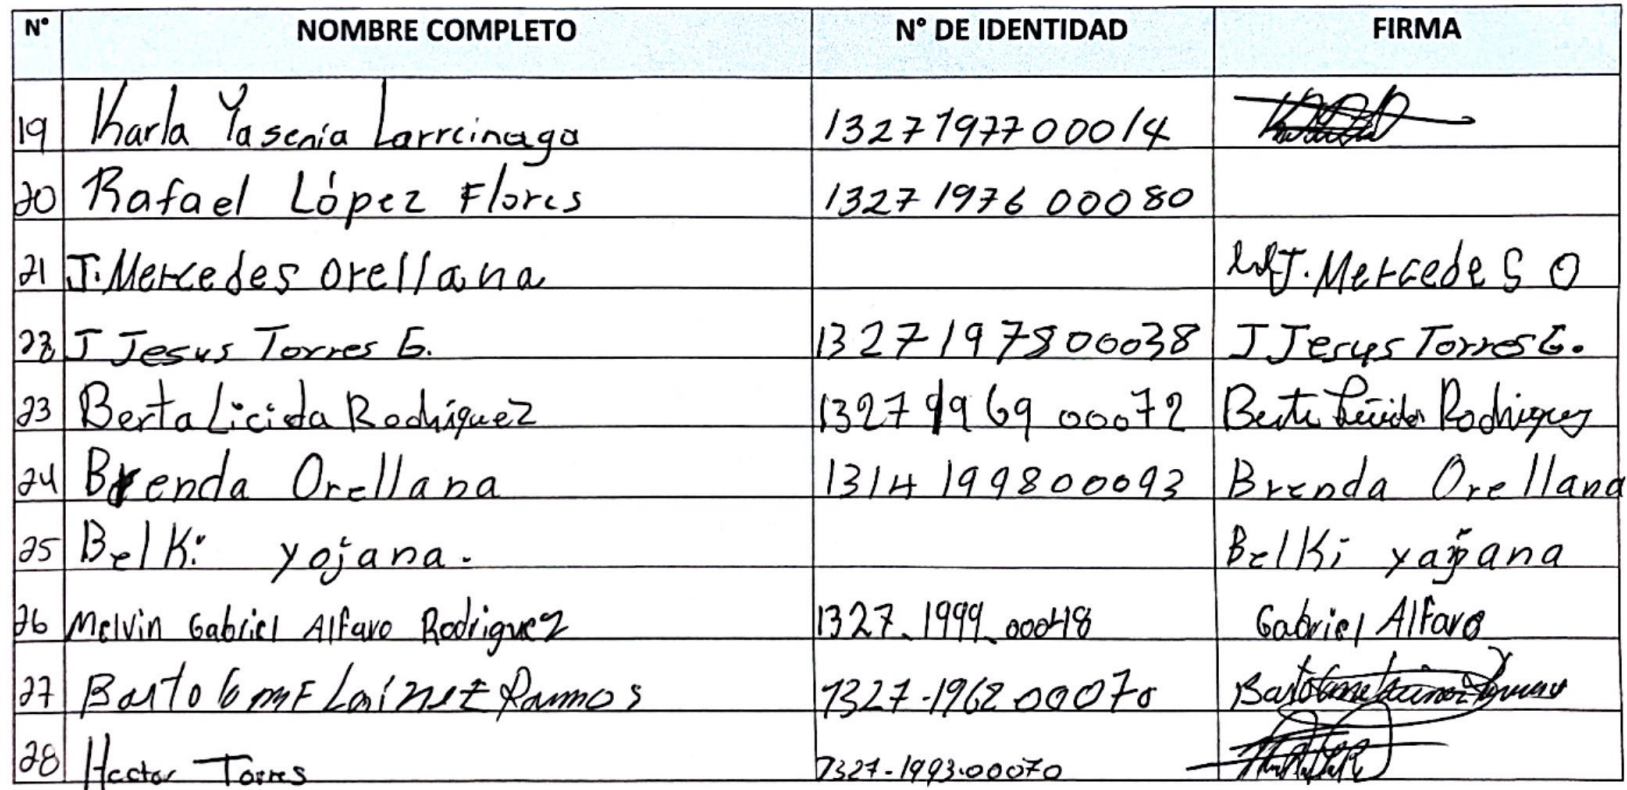 N° NOMBRE COMPLETO N° DE IDENTIDAD FIRMA
19 Karla Yasenia Larreinaga 1327197700014
20 Rafael López Flores 1327 1976 00080
21 J. Mercedes Orellana J. Mercedes O
22 J Jesus Torres G. 1327197800038 J Jesus Torres G.
23 Berta Licida Rodríguez 1327 1969 00072 Rodriguez
24 Brenda Orellana 1314 199800093 Brenda Orellana
25 Belki yojana. Belki yajana
26 Melvin Gabriel Alfaro Rodriguez 1327-1999-00048 Gabriel Alfaro
27 Bartolome Laínez Ramos 1327-1962 00070
28 Hector Torres 1327-1993-00070